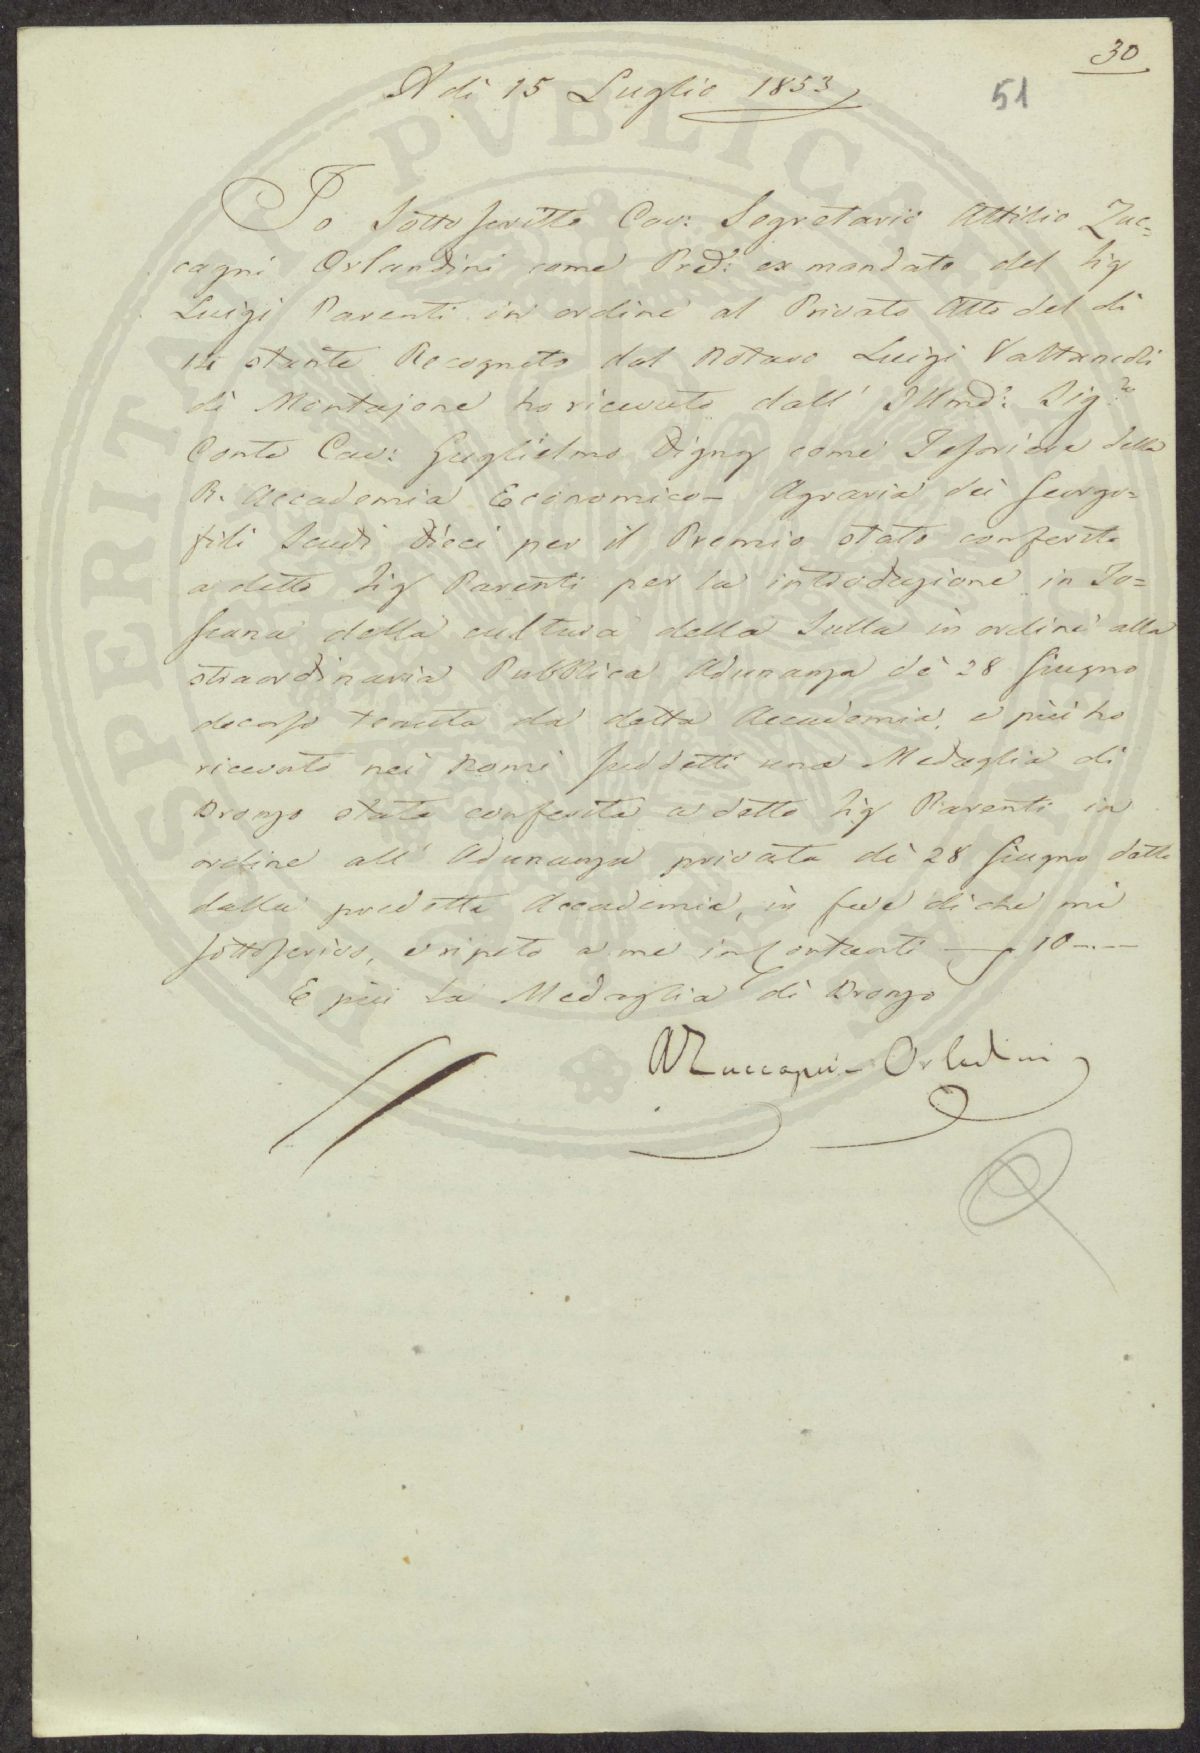 30
51
A dì 15 Luglio 1853
Io Sottoscritto Cav: Segretario Attilio Zuc=
cagni Orlandini come Prod: ex mandato del Sig
Luigi Parenti in ordine al Privato Atto del dì
14 stante Recognito dal Notaro Luigi
di Montajone ho ricevuto dall' Illmo: Sig.re
Conte Cav: Guglielmo Digny come Tesoriere della
R. Accademia Economico-Agraria dei Georgo=
fili Scudi Dieci per il Premio stato conferito
a detto Sig Parenti per la introduzione in To=
scana della cultura della Sulla in ordine alla
straordinaria Pubblica Adunanza de 28 Giugno
decorso tenuta da detta Accademia, e più ho
ricevuto nei Nomi suddetti una Medaglia di
Bronzo stata conferita a detto Sig Parenti in
ordine all' Adunanza privata dì 28 Giugno detto
dalla predetta Accademia, in fede di che mi
sottoscrivo, e ripeto a me in contanti 10
E più la Medaglia di Bronzo
A Zuccagni-Orlandini
PROSPERITATI PVBLICAE AVGENDAE